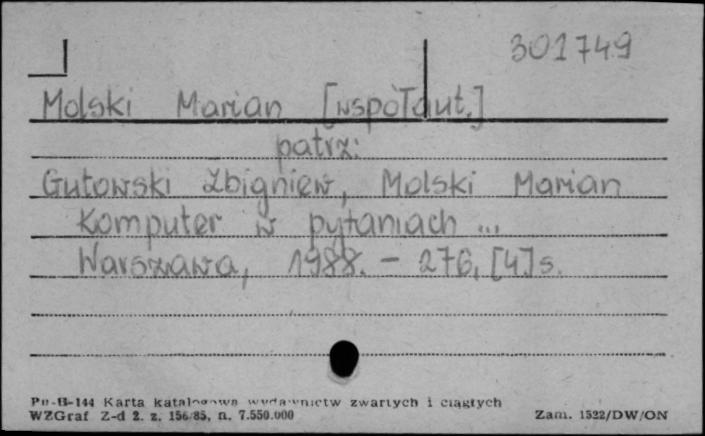 301749
Molski Marian [współaut.]
patrz:
Gutowski Zbigniew, Molski Marian
Komputer w pytaniach ...
Warszawa, 1988. - 276, [4] s.
Pu-B-144 Karta katalogowa wydawnictw zwartych i ciągłych
WZGraf Z-d 2. z. 156/85, n. 7.550.000 Zam. 1522/DW/ON